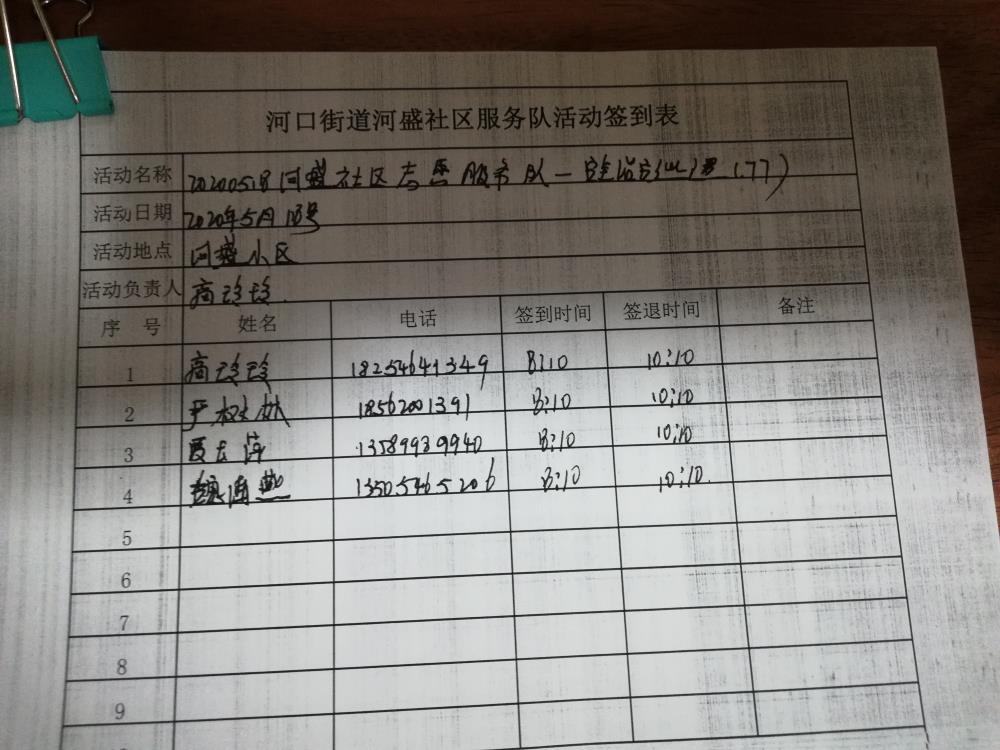 河口街道河盛社区服务队活动签到表
活动名称 20200518河盛社区志愿服务队一 (77)
活动日期 2020年5月18号
活动地点 河盛小区
活动负责人 商玲玲
序号 姓名 电话 签到时间 签退时间 备注
1 商玲玲 18254641349 8:10 10:10
2 严 林 18562001391 8:10 10:10
3 13589939940 8:10 10:10
4 燕 13505465206 8:10 10:10
5
6
7
8
9